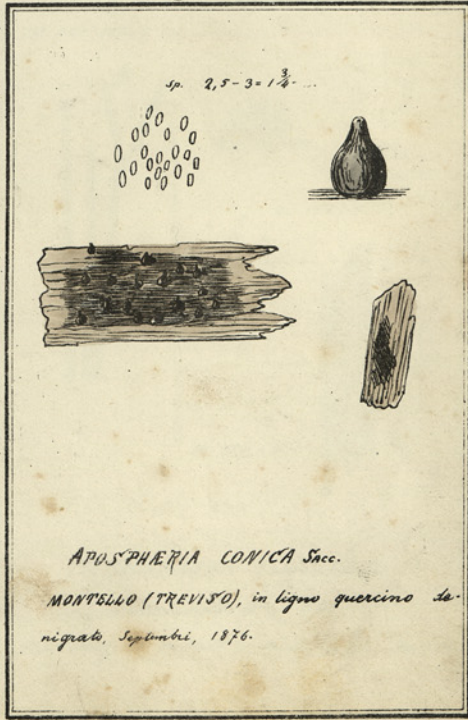 sp. 2,5-3=1 3/4.
APOSPHÆRIA CONICA SACC.
MONTELLO (TREVISO), in ligno quercino de-
nigrato, Septembri, 1876.